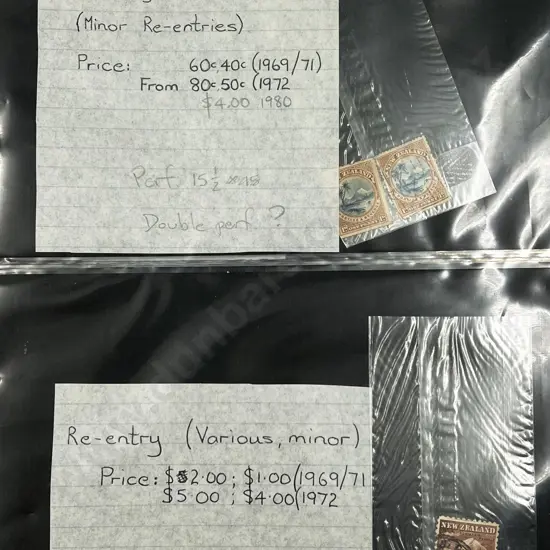 (Minor Re-entries)
Price: 60c, 40c (1969/71)
From 80c 50c (1972
$4.00 1980
Perf. 15½
Double perf ?
NEW ZEALAND
NEW ZEALAND
Re-entry (Various, minor)
Price: $2.00 ; $1.00 (1969/71
$5.00 ; $4.00 (1972
NEW ZEALAND